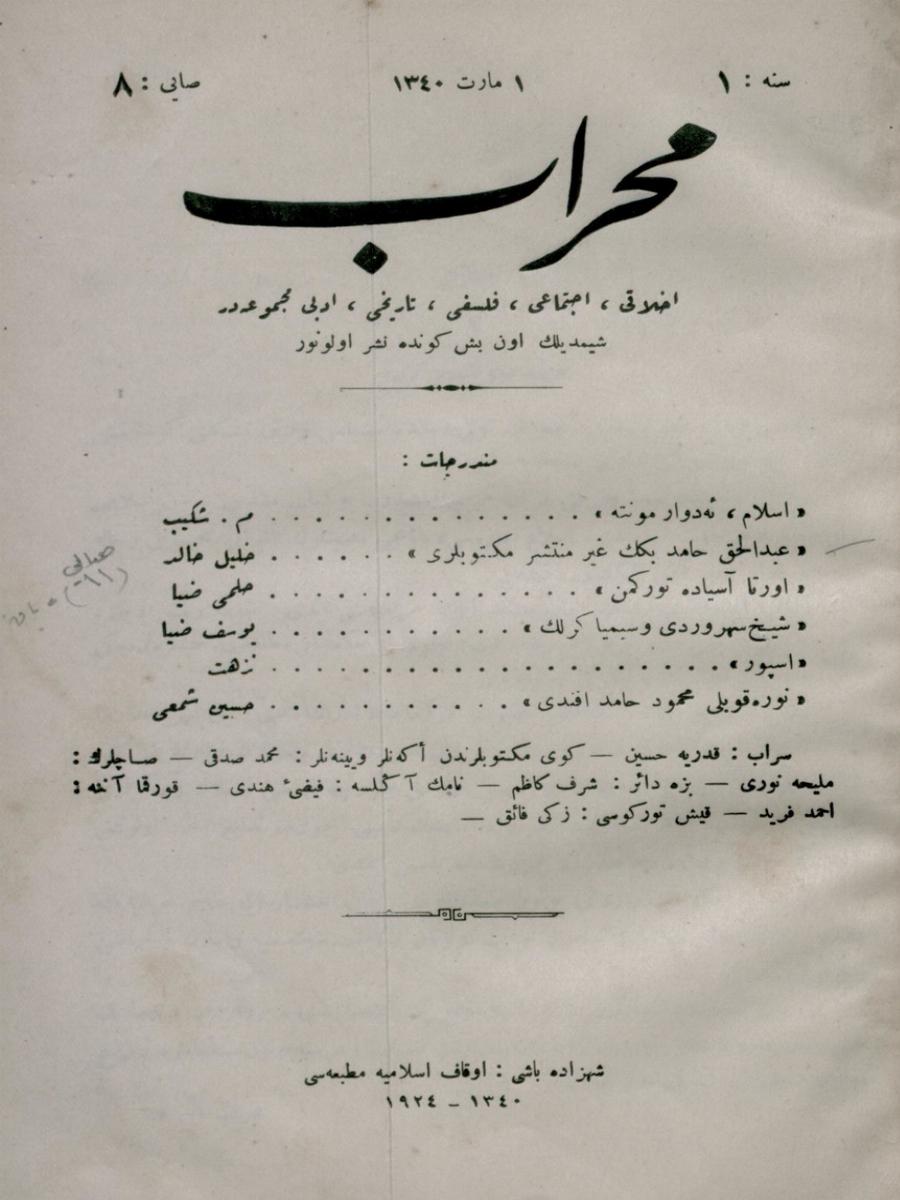 سنه : ١ ١ مارت ١٣٤٠ صايی : ٨
محراب
اخلاقی ، اجتماعی ، فلسفی ، تاريخی ، ادبی مجموعه‌در
شيمديلك اون بش كونده نشر اولونور
مندرجات :
« اسلام ، ئه‌دوار مونته » . . . . . . . . . . . . . م . شكيب
« عبدالحق حامد بكك غير منتشر مكتوبلری » . . . . . . خليل خالد
« اورتا آسياده توركمن » . . . . . . . . . . . . . . حلمی ضيا
« شيخ سهروردی و سيمياكرلك » . . . . . . . . . . . يوسف ضيا
« اسپور » . . . . . . . . . . . . . . . . . . . نزهت
« نوره‌قوپلی محمود حامد افندی » . . . . . . . . . . . حسين شمعی
سراب : قدريه حسين — كوی مكتوبلرندن أكه‌نلر وبينه‌نلر : محمد صدقی — صاچلرك :
مليحه نوری — بزه دائر : شرف كاظم — نامك آكلسه : فيضیٔ هندی — قورقما آننه :
احمد فريد — قيش توركوسی : زكی فائق —
صحائی
(٦١)
شهزاده باشی : اوقاف اسلاميه مطبعه‌سی
١٣٤٠ – ١٩٢٤